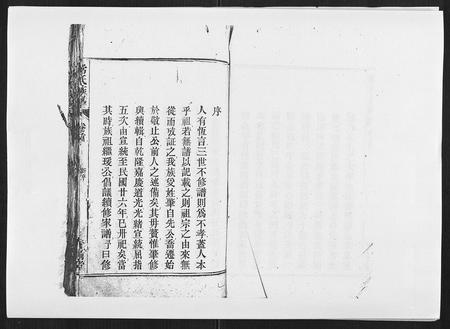 序
人有恆言三世不修譜則為不孝蓋人本
乎祖若無譜以記載之則祖宗之由來無
從而攷証之我族受姓肇自先公喬遷始
於敬止公前人之述備矣其毋贅惟肇修
與續輯自乾隆嘉慶道光光緒宣統屈指
五次由宣統至民國廿六年已卅祀矣當
其時族祖繼瑗公倡議續修家譜予曰修